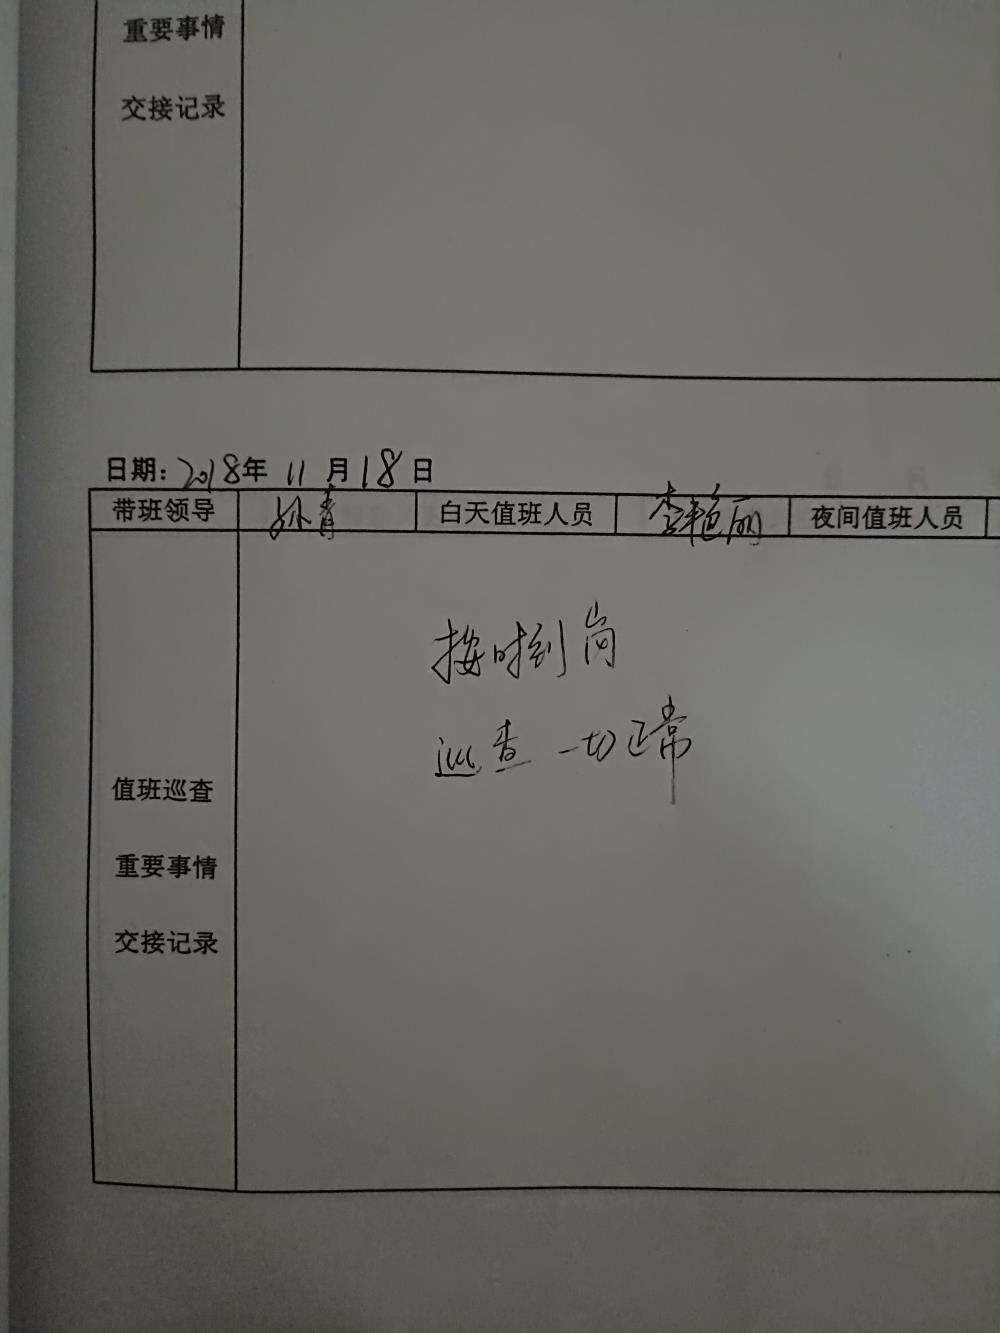 重要事情
交接记录
日期：2018年 11月18日
带班领导 孙青 白天值班人员 李艳丽 夜间值班人员
按时到岗
巡查一切正常
值班巡查
重要事情
交接记录